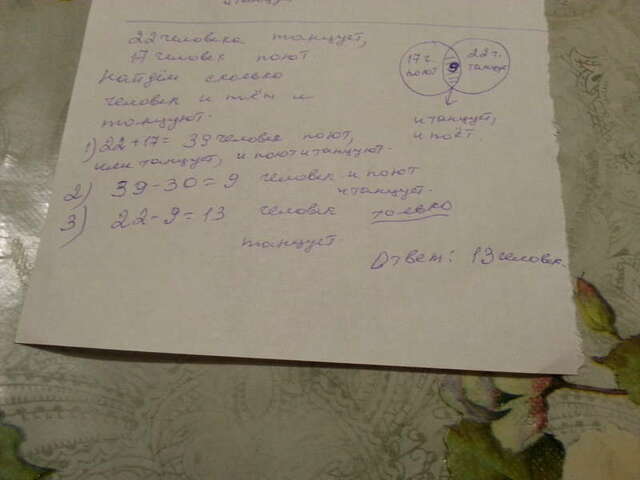 22 человека танцует,
17 человек поют
Найдём сколько
человек и поёт и
танцует.
1) 22 + 17 = 39 человек поют,
или танцует, и поют и танцуют.
2) 39 - 30 = 9 человек и поют
и танцует.
3) 22 - 9 = 13 человек только
танцует
Ответ: 13 человек.
17 ч.
поют
9
22 ч.
танцу
и танцует,
и поёт